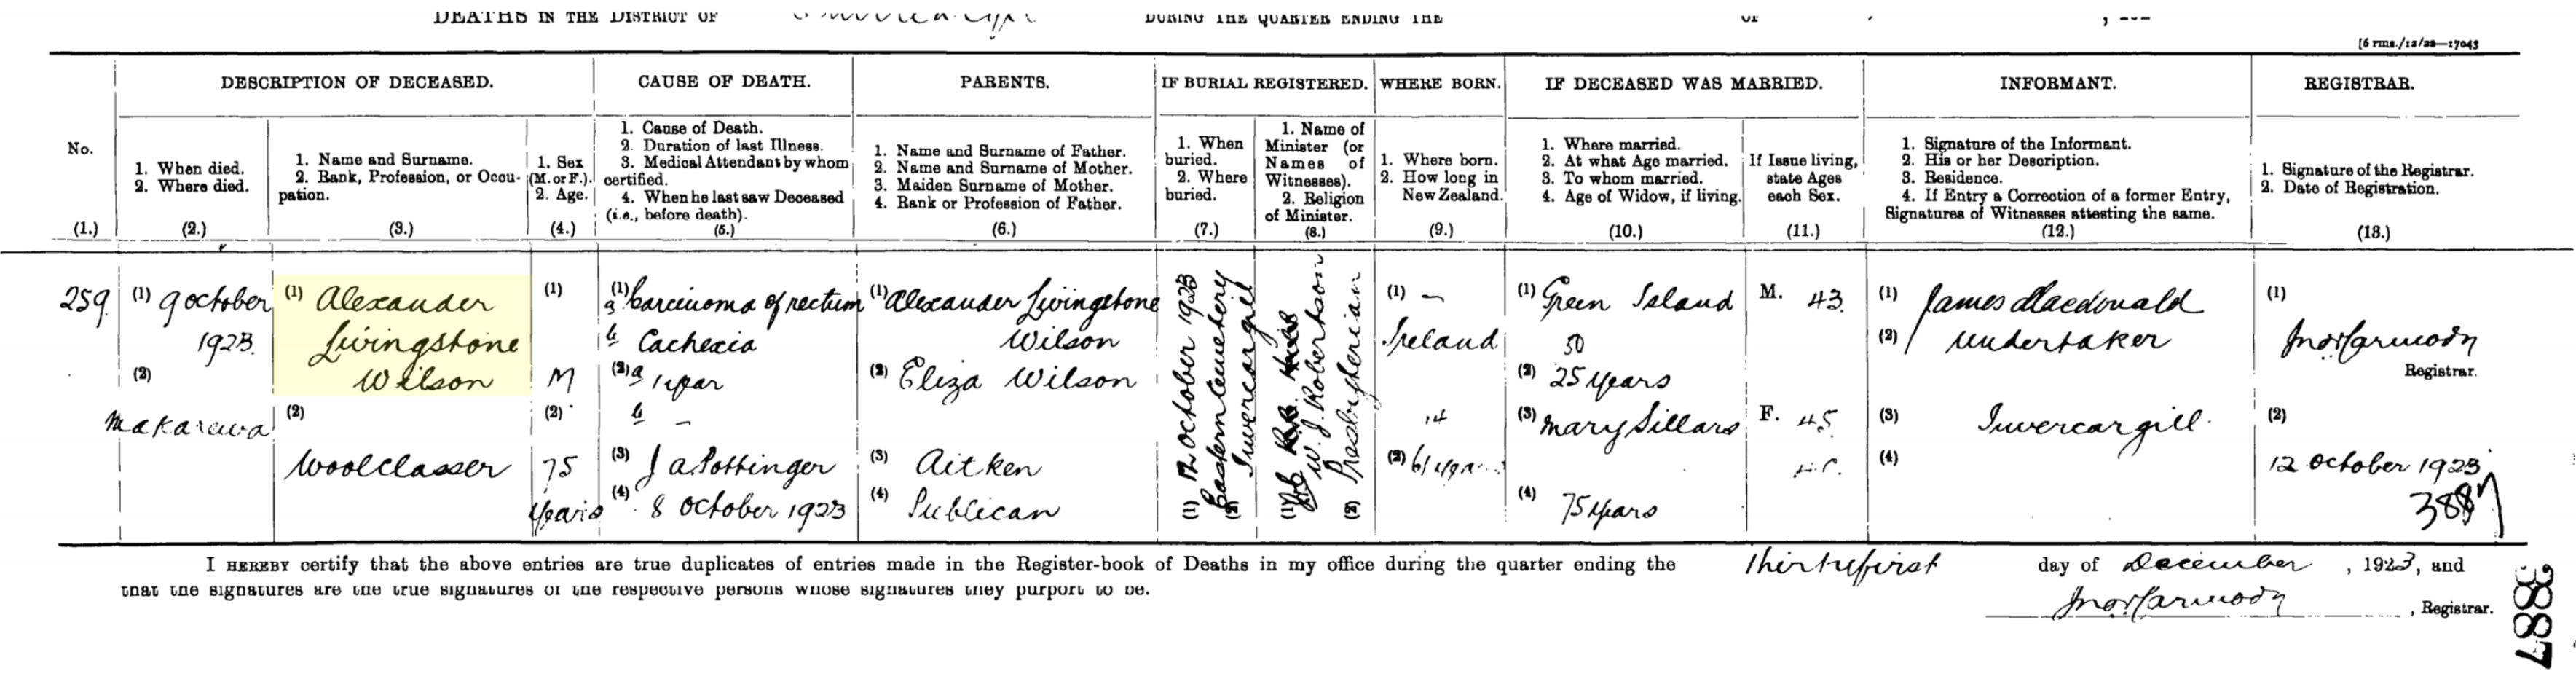 DEATHS IN THE DISTRICT OF DURING THE QUARTER ENDING THE OF
[6 rms./12/22—17043
DESCRIPTION OF DECEASED. CAUSE OF DEATH. PARENTS. IF BURIAL REGISTERED. WHERE BORN. IF DECEASED WAS MARRIED. INFORMANT. REGISTRAR.
No.
(1.)
1. When died.
2. Where died.
(2.)
1. Name and Surname.
2. Rank, Profession, or Occu-
pation.
(3.)
1. Sex
(M. or F.).
2. Age.
(4.)
1. Cause of Death.
2. Duration of last Illness.
3. Medical Attendant by whom
certified.
4. When he last saw Deceased
(i.e., before death).
(5.)
1. Name and Surname of Father.
2. Name and Surname of Mother.
3. Maiden Surname of Mother.
4. Rank or Profession of Father.
(6.)
1. When
buried.
2. Where
buried.
(7.)
1. Name of
Minister (or
Names of
Witnesses).
2. Religion
of Minister.
(8.)
1. Where born.
2. How long in
New Zealand.
(9.)
1. Where married.
2. At what Age married.
3. To whom married.
4. Age of Widow, if living.
(10.)
If Issue living,
state Ages
each Sex.
(11.)
1. Signature of the Informant.
2. His or her Description.
3. Residence.
4. If Entry a Correction of a former Entry,
Signatures of Witnesses attesting the same.
(12.)
1. Signature of the Registrar.
2. Date of Registration.
(13.)
259
(1) 9 October
1923.
(2)
Makarewa
(1) Alexander
Livingstone
Wilson
(2)
Woolclasser
(1)
M
(2)
75
years
(1) a Carcinoma of rectum
b Cachexia
(2) a 1 year
b –
(3) J a Pottinger
(4) 8 October 1923
(1) Alexander Livingstone
Wilson
(2) Eliza Wilson
(3) Aitken
(4) Publican
(1) 12 October 1923
(2) Eastern Cemetery
Invercargill
(1)
W. J. Robertson
(2) Presbyterian
(1) —
Ireland
14
(2) 61
(1) Green Island
50
(2) 25 years
(3) Mary Sillars
(4) 75 years
M. 43.
F. 45
(1) James Macdonald
(2) Undertaker
(3) Invercargill.
(4)
(1)
Registrar.
(2)
12 October 1923
3887
I HEREBY certify that the above entries are true duplicates of entries made in the Register-book of Deaths in my office during the quarter ending the Thirtyfirst day of December, 1923, and
that the signatures are the true signatures of the respective persons whose signatures they purport to be.
, Registrar.
3887